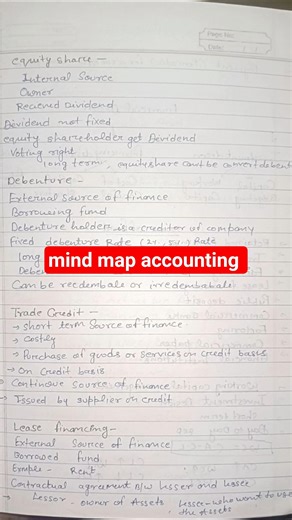 Page No:
Date:
equity share –
Internal Source
Owner
Recieved Dividend
Dividend not fixed
equity shareholder get Dividend
Voting right
long term, equity share can't be convert
Debenture –
External source of finance
Borrowing fund
Debenture holder is a creditor of company
Fixed debenture Rate Rate
Long
mind map accounting
Can be
Trade Credit –
→ Short term Source of finance
→ Costly
→ Purchase of goods or services on credit basis
→ On credit basis
→ Continuous Source of finance
→ Issued by supplier on credit.
Lease financing –
External Source of finance
Borrowed fund
Rent
Contractual agreement b/w lesser and lessee
→ Lessor – owner of Assets Lessee – who want to use the Assets